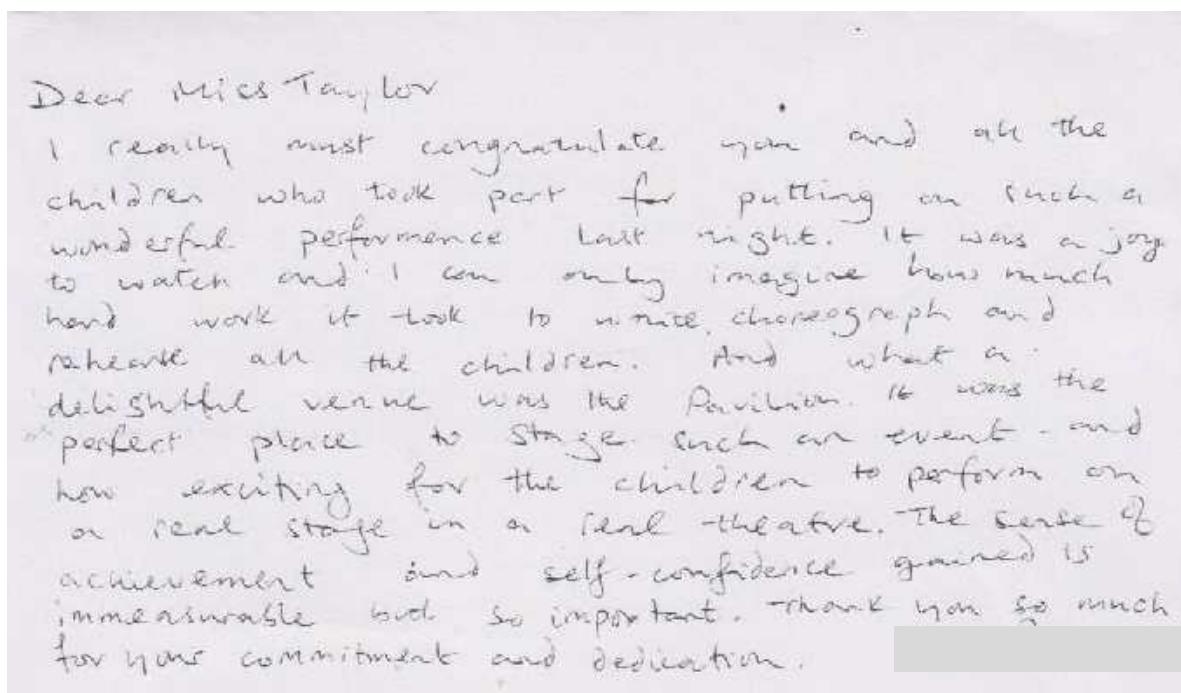 Dear Miss Taylor
I really must congratulate you and all the
children who took part for putting on such a
wonderful performence last night. It was a joy
to watch and I can only imagine how much
hard work it took to write, choreograph and
rehearse all the children. And what a
delightful venue was the Pavilion. It was the
perfect place to stage such an event - and
how exciting for the children to perform on
a real stage in a real theatre. The sense of
achievement and self-confidence gained is
immeasurable but so important. Thank you so much
for your commitment and dedication.